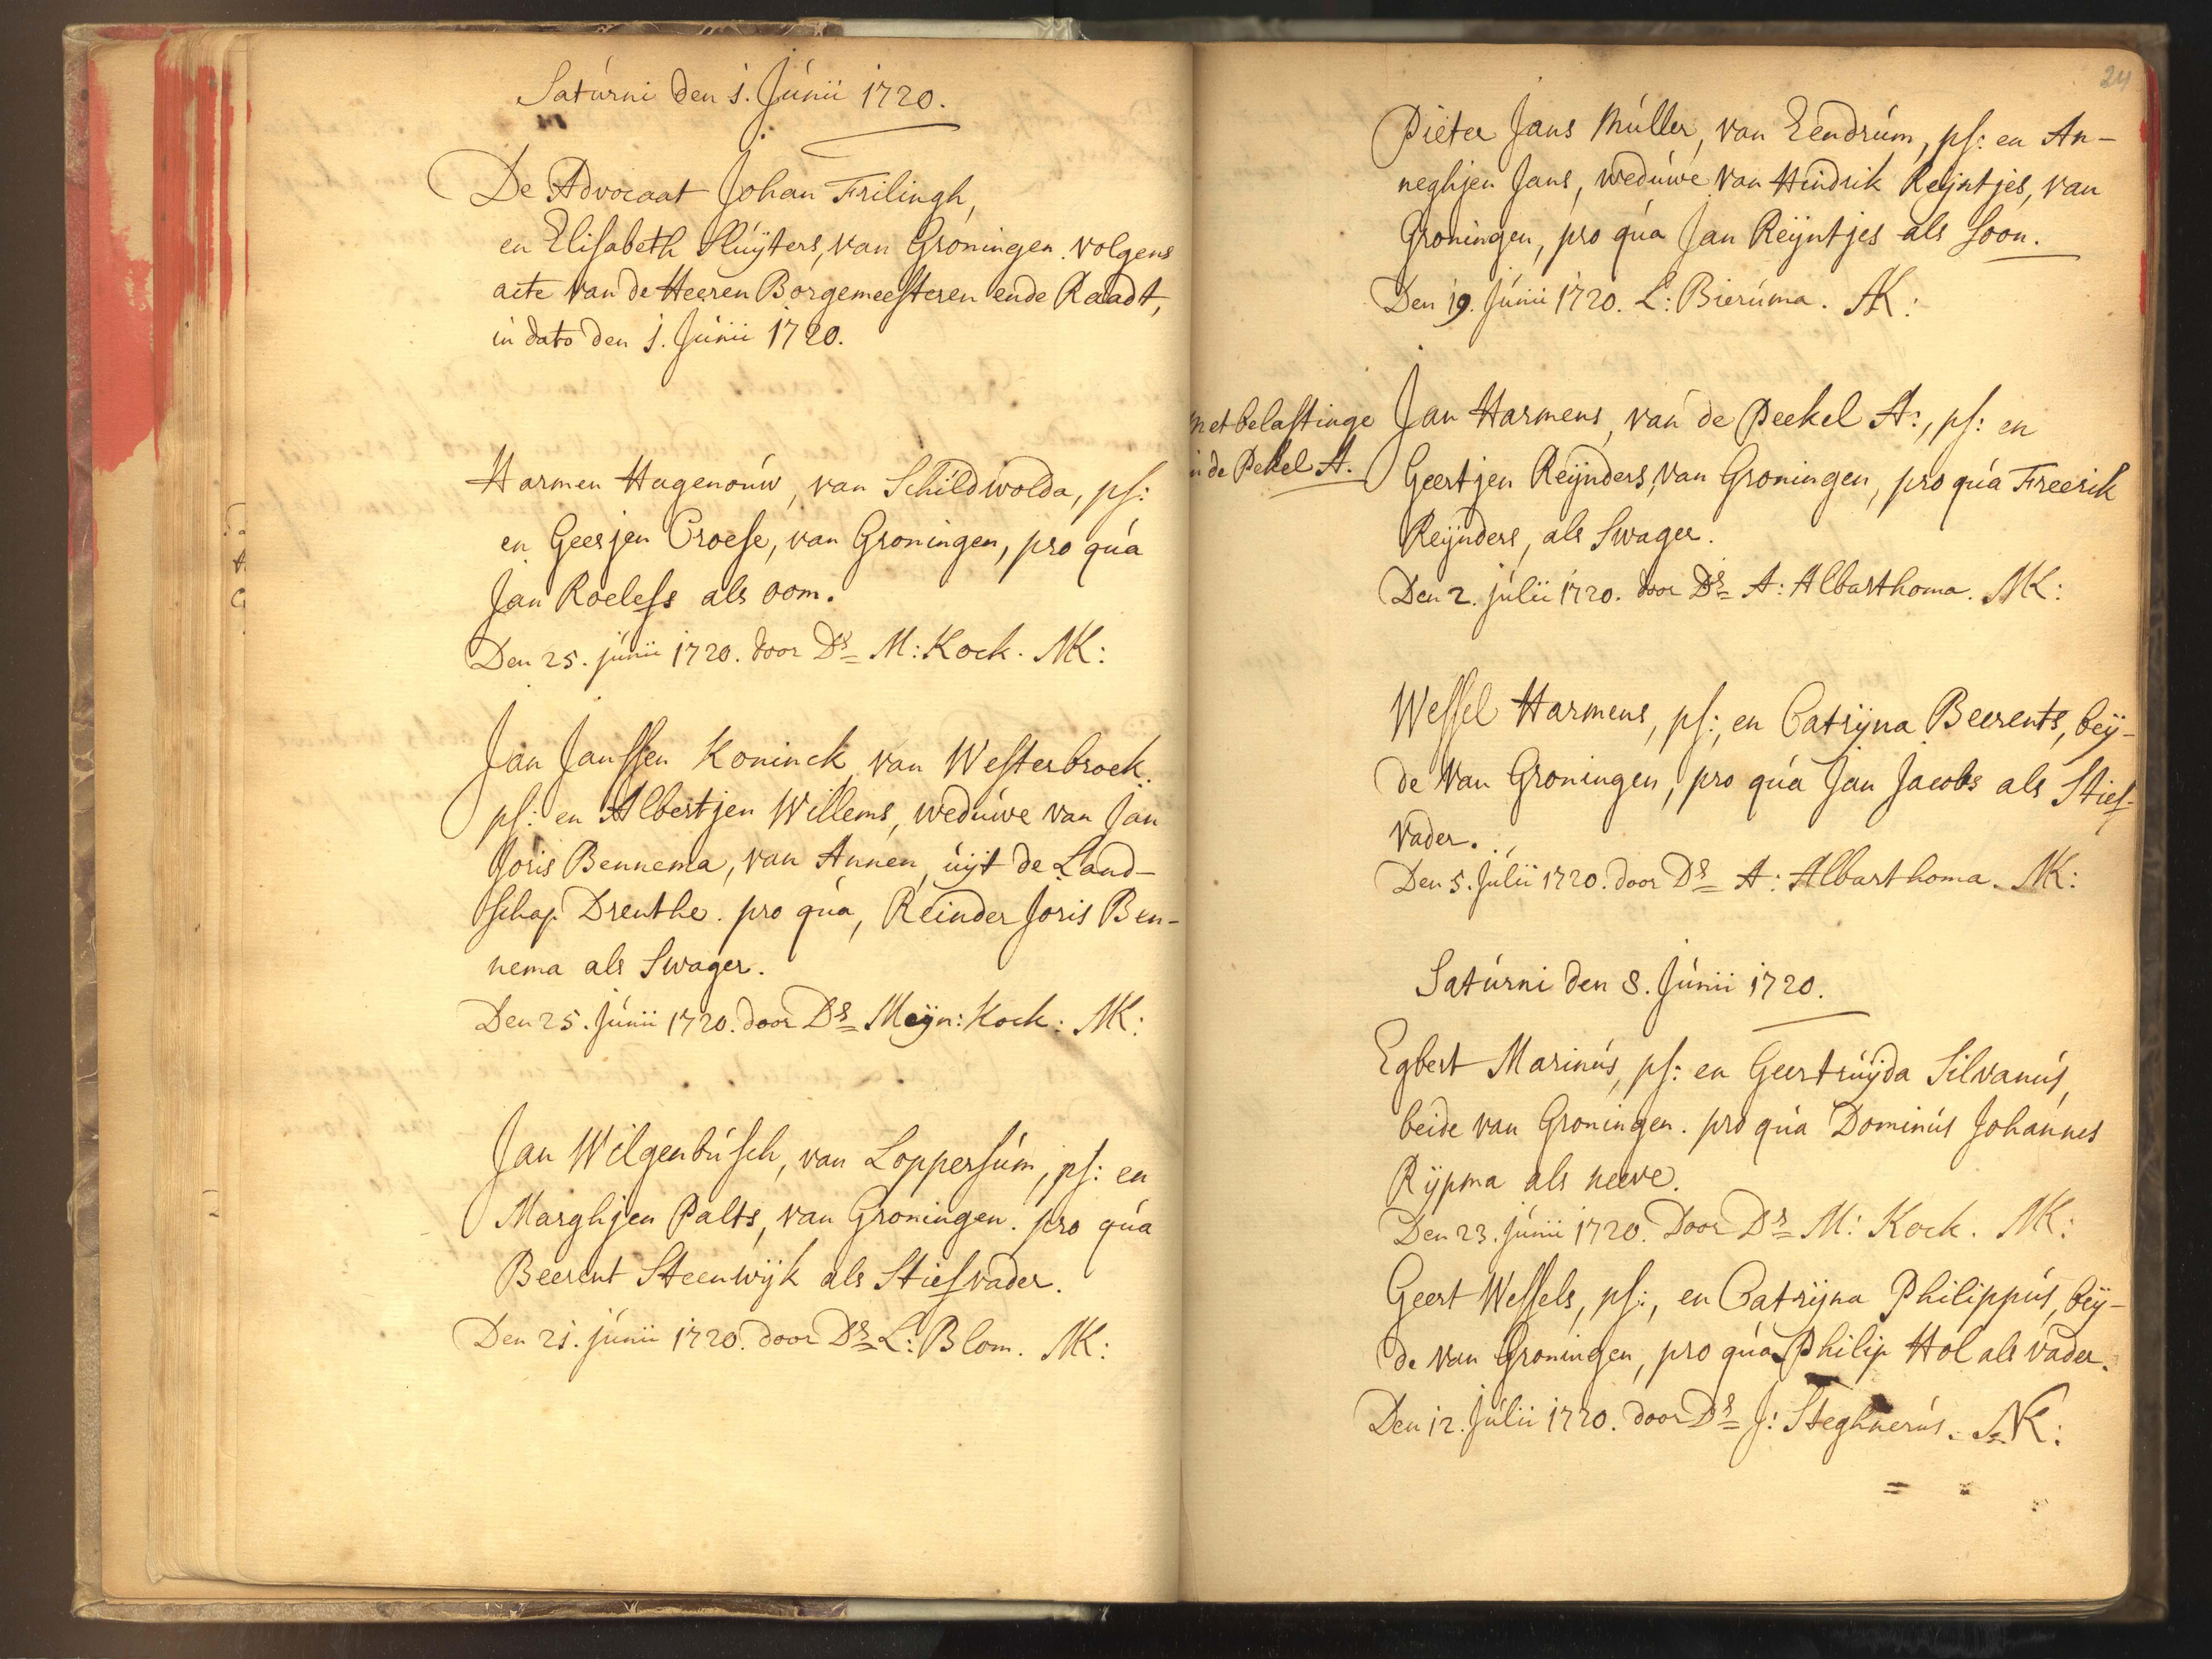 Saturni den 1. Junii 1720.
De Advocaat Johan Frilingh,
en Elisabeth Sluijters, van Groningen. volgens
acte van de Heeren Borgemeesteren ende Raadt,
in dato den 1. Junii 1720.
Harmen Hagenouw, van Schildwolda, ps:
en Geesjen Croese, van Groningen, pro qua
Jan Roelefs als oom.
Den 25. junii 1720. door Ds M: Kock. NK:
Jan Janssen Koninck, van Westerbroek.
ps: en Albertjen Willems, weduwe van Jan
Joris Bennema, van Annen, uijt de Land-
schap Drenthe. pro qua, Reinder Joris Ben-
nema als Swager.
Den 25. Junii 1720. door Ds Meijn: Kock. NK:
Jan Wilgenbusch, van Loppersum, ps: en
Marghjen Palts, van Groningen. pro qua
Beerent Steenwijk als Stiefvader.
Den 21. junii 1720. door Ds L: Blom. NK:
24
Pieter Jans Muller, van Eendrum, ps: en An-
neghjen Jans, weduwe van Hindrik Reijntjes, van
Groningen, pro qua Jan Reijntjes als Soon.
Den 19. Junii 1720. L: Bieruma. NK:
met belastinge
in de Pekel A.
Jan Harmens, van de Peekel A:, ps: en
Geertjen Reijnders, van Groningen, pro qua Freerik
Reijnders, als Swager.
Den 2. julii 1720. door Ds A: Albarthoma. NK:
Wessel Harmens, ps:, en Catrijna Beerents, beij-
de van Groningen, pro qua Jan Jacobs als Stief-
vader.
Den 5. Julii 1720. door Ds A: Albarthoma. NK:
Saturni den 8. Junii 1720.
Egbert Marinus, ps: en Geertruijda Silvanus,
beide van Groningen. pro qua Dominus Johannes
Rijpma als neeve.
Den 23. junii 1720. Door Ds M: Kock. NK:
Geert Wessels, ps:, en Catrijna Philippus, beij-
de van Groningen, pro qua Philip Hol als vader.
Den 12. Julii 1720. door Ds J: Steghnerus. NK: